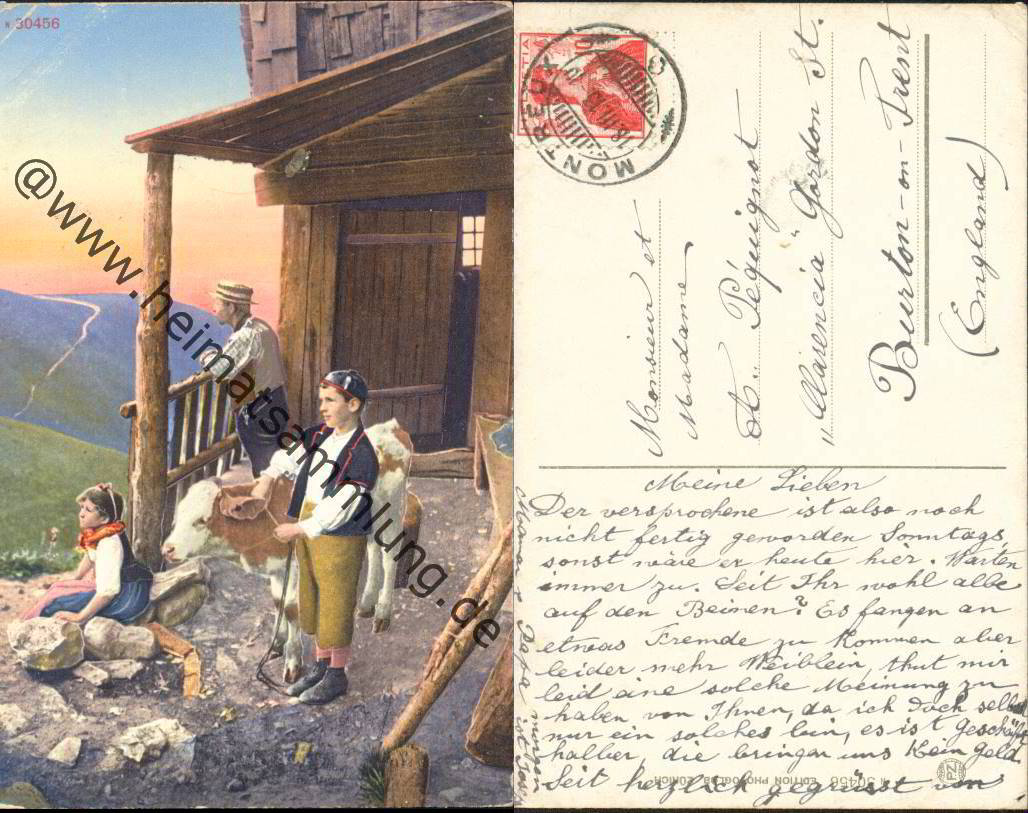 N 30456
@www.heimatsammlung.de
HELVETIA
10
MONTREUX
Monsieur et
Madame
A. Péquignot
„Clarencia" Gordon St.
Burton-on-Trent
(England)
Meine Lieben
Der versprochene ist also noch
nicht fertig geworden Sonntags,
sonst wäre er heute hier. Warten
immer zu. Seit Ihr wohl alle
auf den Beinen? Es fangen an
etwas Fremde zu kommen aber
leider mehr Weiblein, thut mir
leid eine solche Meinung zu
haben von Ihnen, da ich doch selbst
nur ein solches bin, es ist Geschäfts
halber, die bringen uns kein Geld.
Seit herzlich gegrüsst von
Mama & Papa
N 30456 EDITION PHOTOGLOB ZÜRICH
PZ